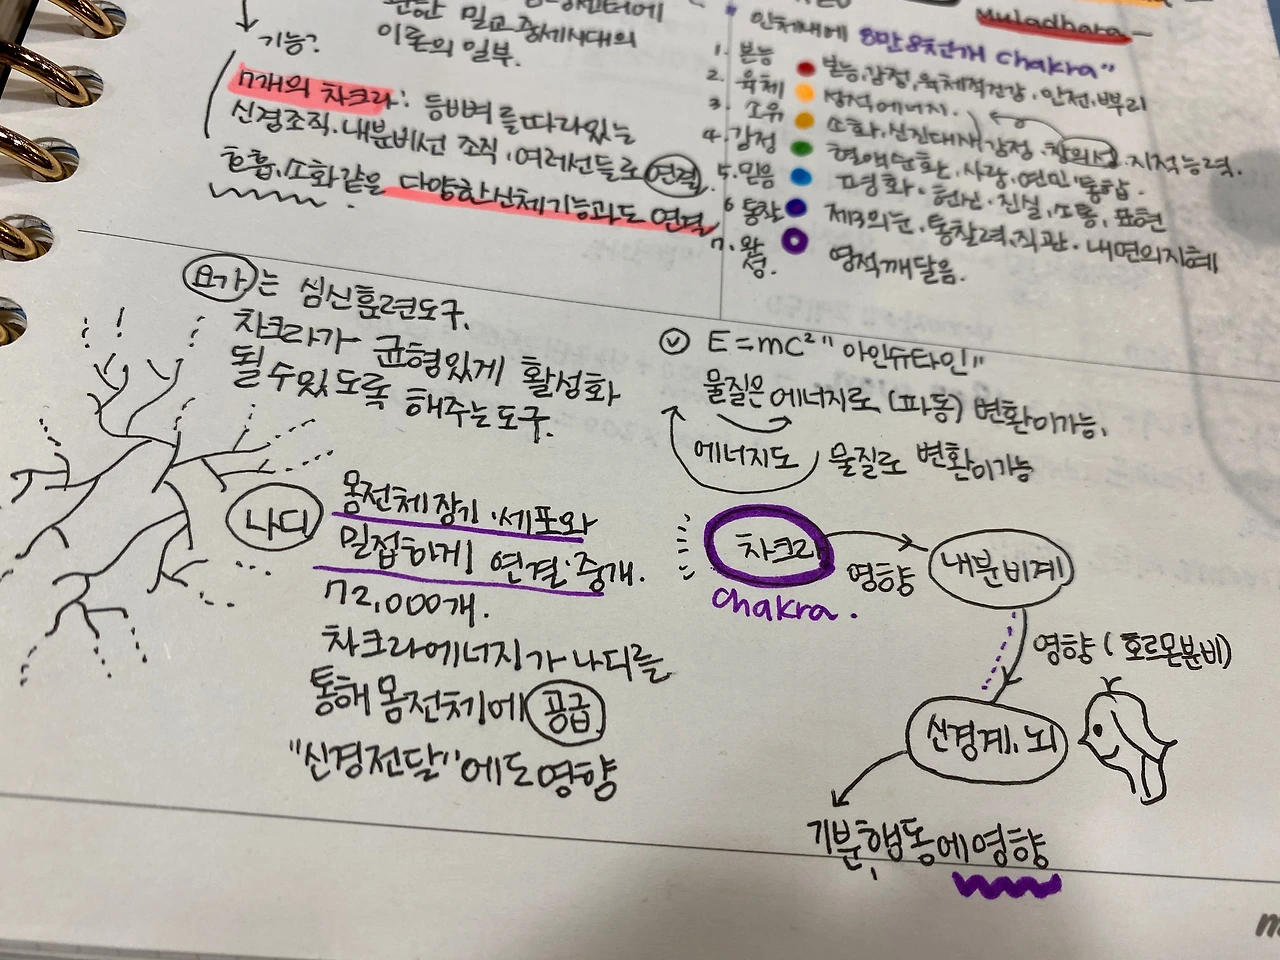 밀교, 중세시대의
이론의 일부.
기능?
7개의 차크라: 등뼈를따라있는
신경조직·내분비선 조직·여러선들로 연결.
호흡, 소화같은 다양한신체기능과도 연결
Muladhara
인체내에 8만8천개 chakra"
1. 본능 본능,감정,육체적건강, 안전,뿌리
2. 육체 성적에너지.
3. 소유 소화,신진대사,감정, 창의성, 지적능력.
4. 감정 혈액순환, 사랑, 연민 "통합.
5. 믿음 평화·헌신·진실, 소통, 표현
6 통찰 제3의눈, 통찰력,직관·내면의지혜
7. 완성. 영적깨달음.
요가는 심신훈련도구.
차크라가 균형있게 활성화
될 수 있도록 해주는도구.
나디
몸전체장기·세포와
밀접하게 연결·중개.
72,000개.
차크라에너지가 나디를
통해 몸전체에 공급
"신경전달"에도영향
E=mc² "아인슈타인"
물질은 에너지로 (파동) 변환이가능,
에너지도 물질로 변환이가능
차크라
chakra.
영향
내분비계
영향 (호르몬분비)
신경계, 뇌
기분,행동에영향